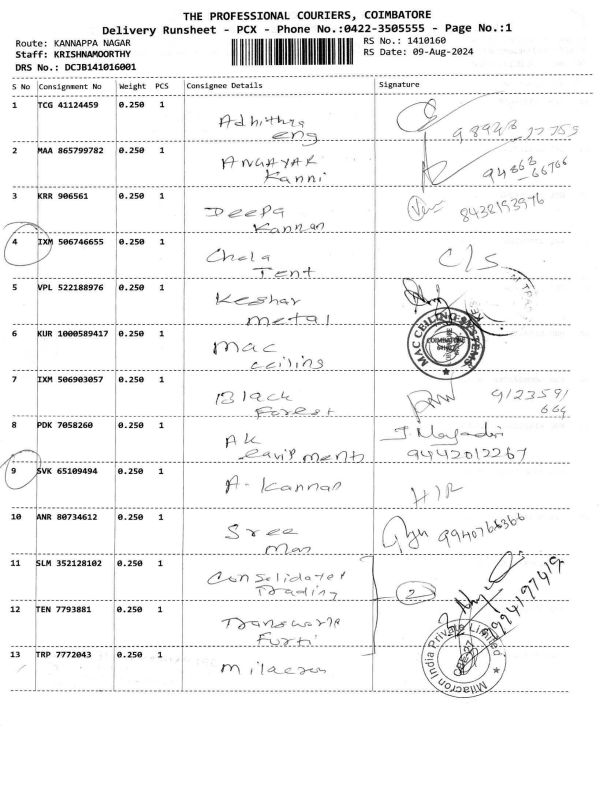 THE PROFESSIONAL COURIERS, COIMBATORE
Delivery Runsheet - PCX - Phone No.:0422-3505555 - Page No.:1
Route: KANNAPPA NAGAR
Staff: KRISHNAMOORTHY
DRS No.: DCJB141016001
RS No.: 1410160
RS Date: 09-Aug-2024
S No Consignment No Weight PCS Consignee Details Signature
1 TCG 41124459 0.250 1 Adhithya
eng
2 MAA 865799782 0.250 1 ANGAYAR
Kanni
94868
66766
3 KRR 906561 0.250 1 Deepa
Kannan
8438193976
4 IXM 506746655 0.250 1 Chola
Tent
C/S
5 VPL 522188976 0.250 1 Keshar
metal
6 KUR 1000589417 0.250 1 Mac
ceiling
MAC CEILING SYSTEMS
COIMBATORE
7 IXM 506903057 0.250 1 Black
Forest
9123591
664
8 PDK 7058260 0.250 1 AK
9442012267
9 SVK 65109494 0.250 1 A. Kannan
10 ANR 80734612 0.250 1 Sree
11 SLM 352128102 0.250 1 Consolidated
Trading
2
12 TEN 7793881 0.250 1
9994197419
13 TRP 7772043 0.250 1 Milacron
Milacron India Private Limited